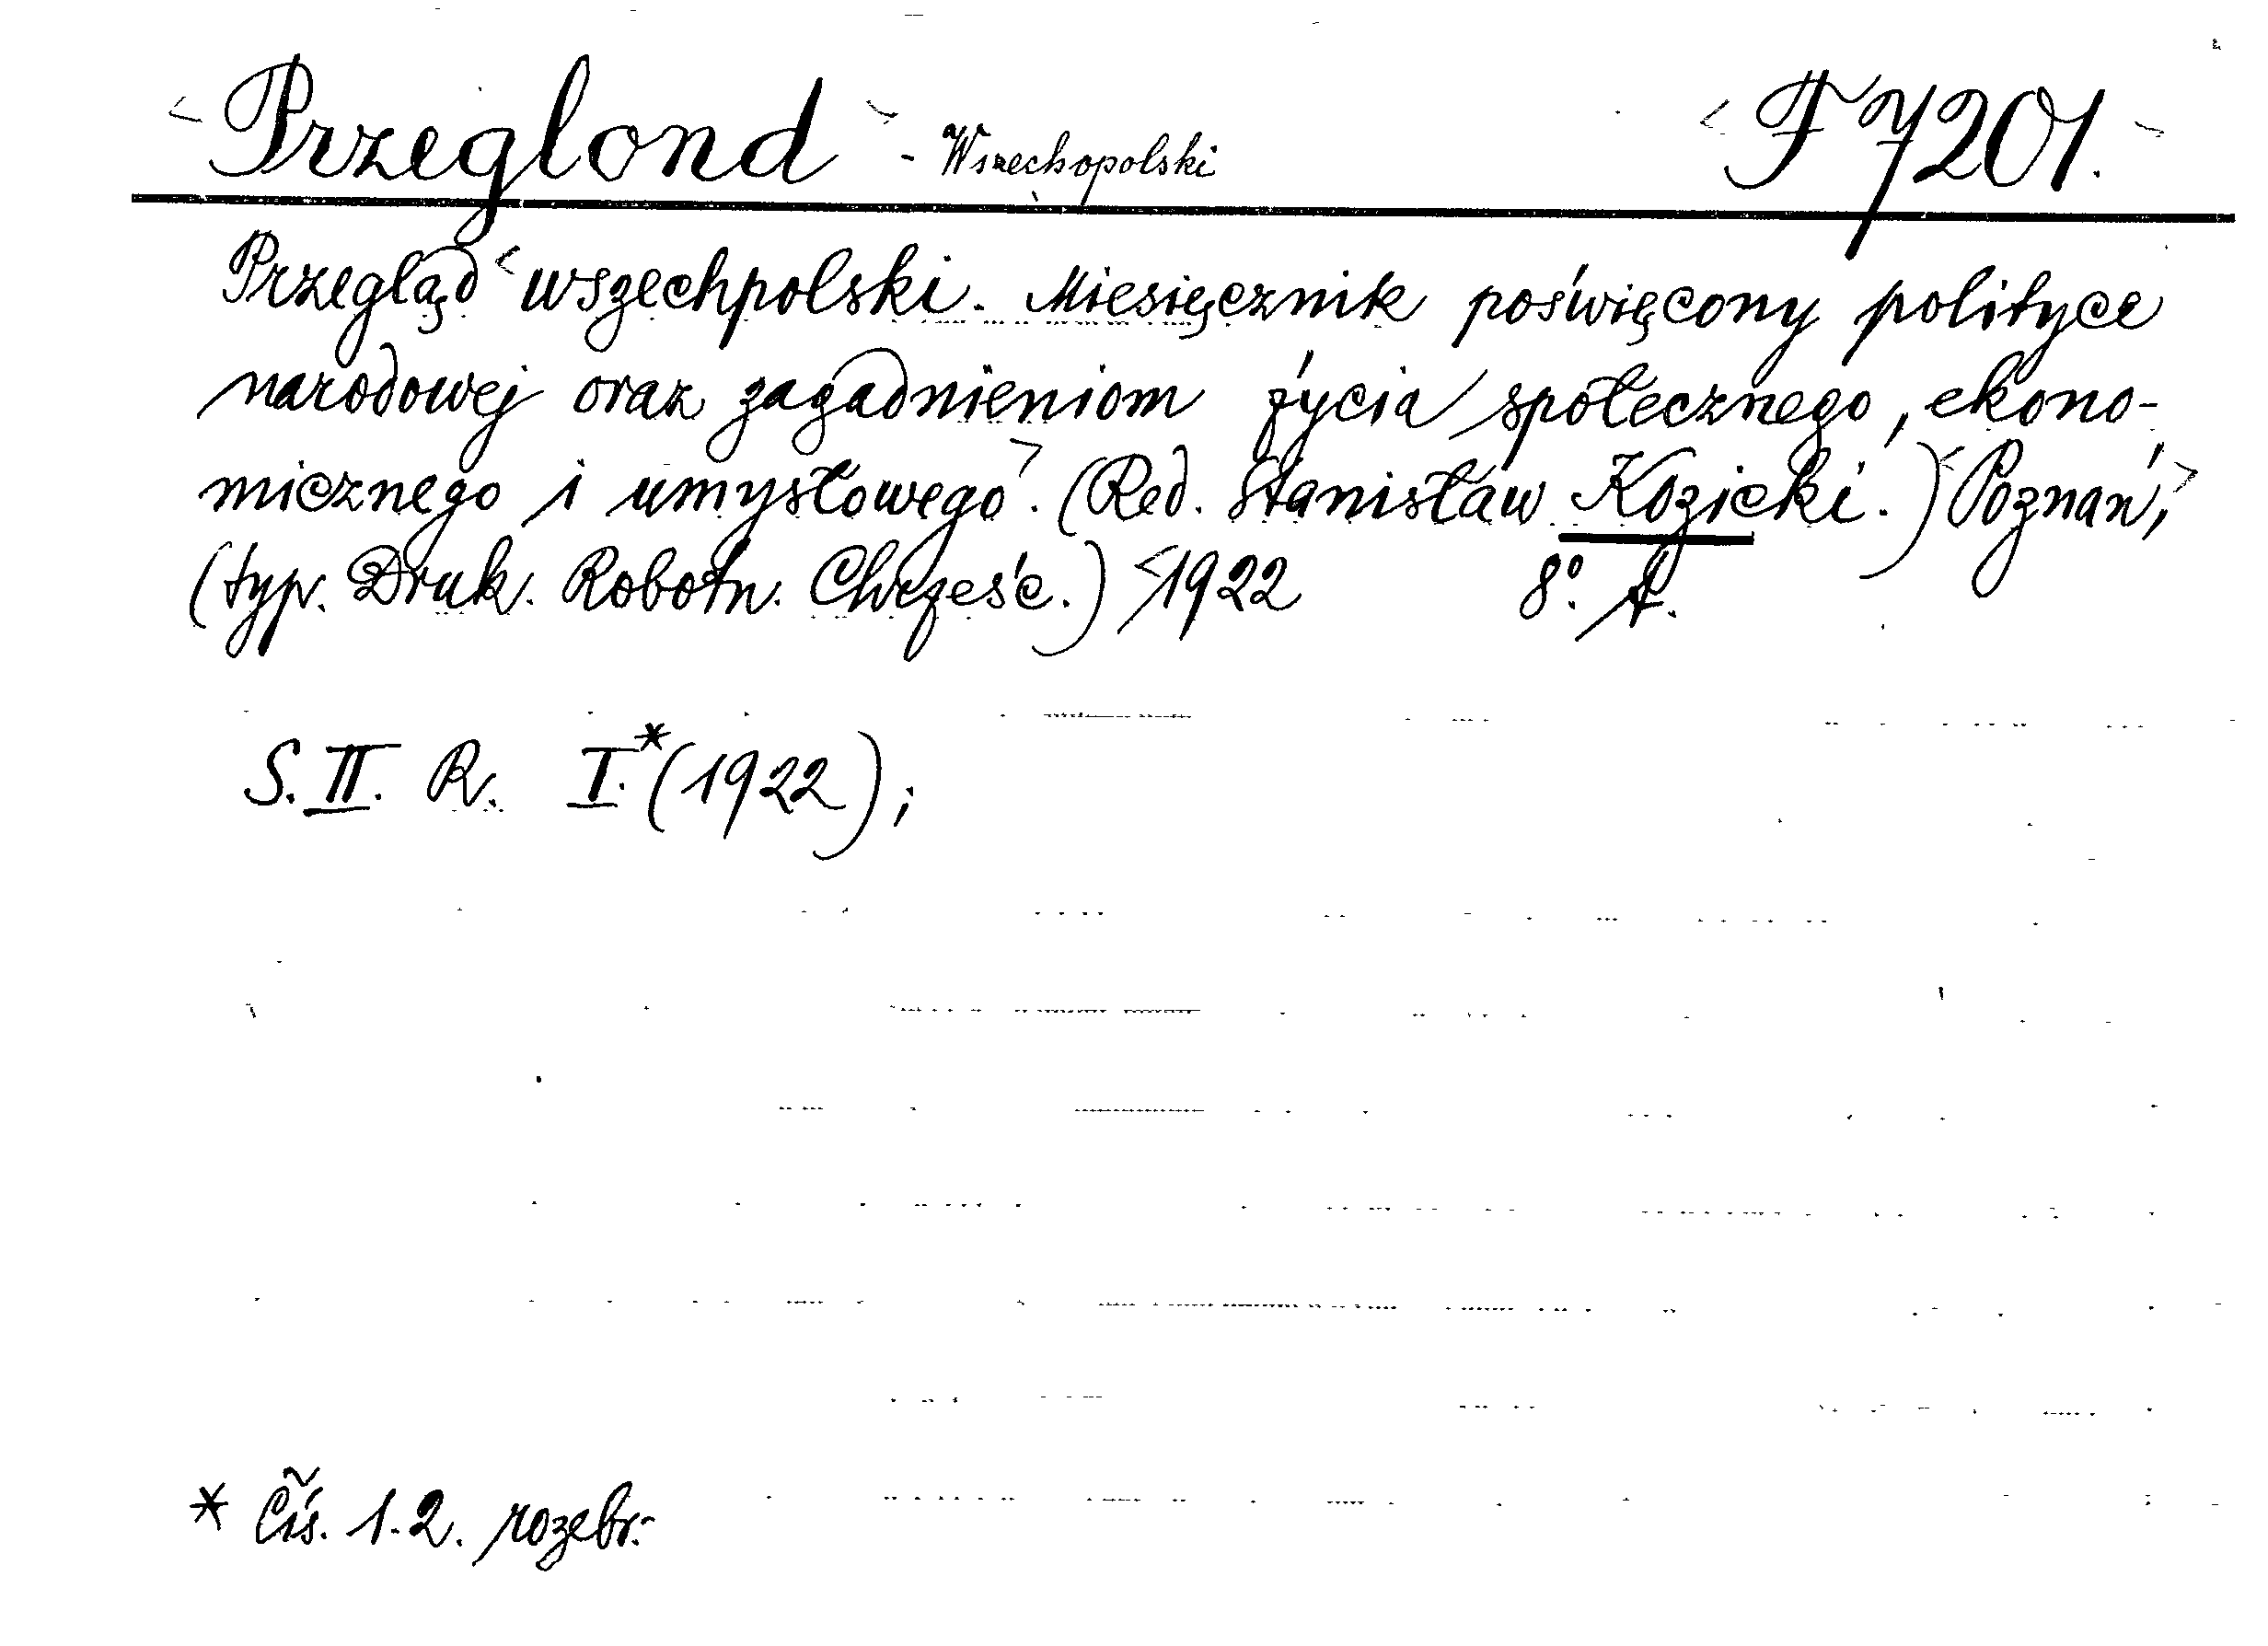 Przeglond - Wszechopolski F 7201.
Przegląd wszechpolski. Miesięcznik poświęcony polityce
narodowej oraz zagadnieniom życia społecznego, ekono-
micznego i umysłowego. (Red. Stanisław Kozicki.) Poznań,
(typ. Druk. Robotn. Chrześc.) 1922 8°. A.
S. II. R. I.* (1922);
* Čís. 1.2. rozebr.